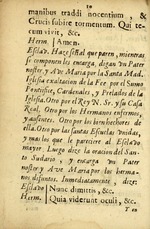 10
manibus traddi nocentium, &
Crucis subire tormentum. Qui te-
cum vivit, &c.
Herm. Amen.
Esclavo. Haze señal que paren, mientras
se componen los encarga, digan un Pater
noster y Ave Maria por la Santa Mad.
Iglesia exaltacion de la Fee. por el Sumo
Pontifice, Cardenales, y Prelados de la
Iglesia. Otro por el Rey N. Sr. y su Casa
Real. Otro por los Hermanos enfermos,
y ausentes. Otro por los bienhechores de
ella. Otro por las santas Esculas unidas,
y mas los que le pareciere al Esclavo
mayor. Luego dize la oracion del San-
to Sudario, y encarga un Pater
noster y Ave Maria por los herma-
nos difuntos. Inmediatamente dize:
Esclavo Nunc dimittis, &c.
Herm. Quia viderunt oculi, &c.